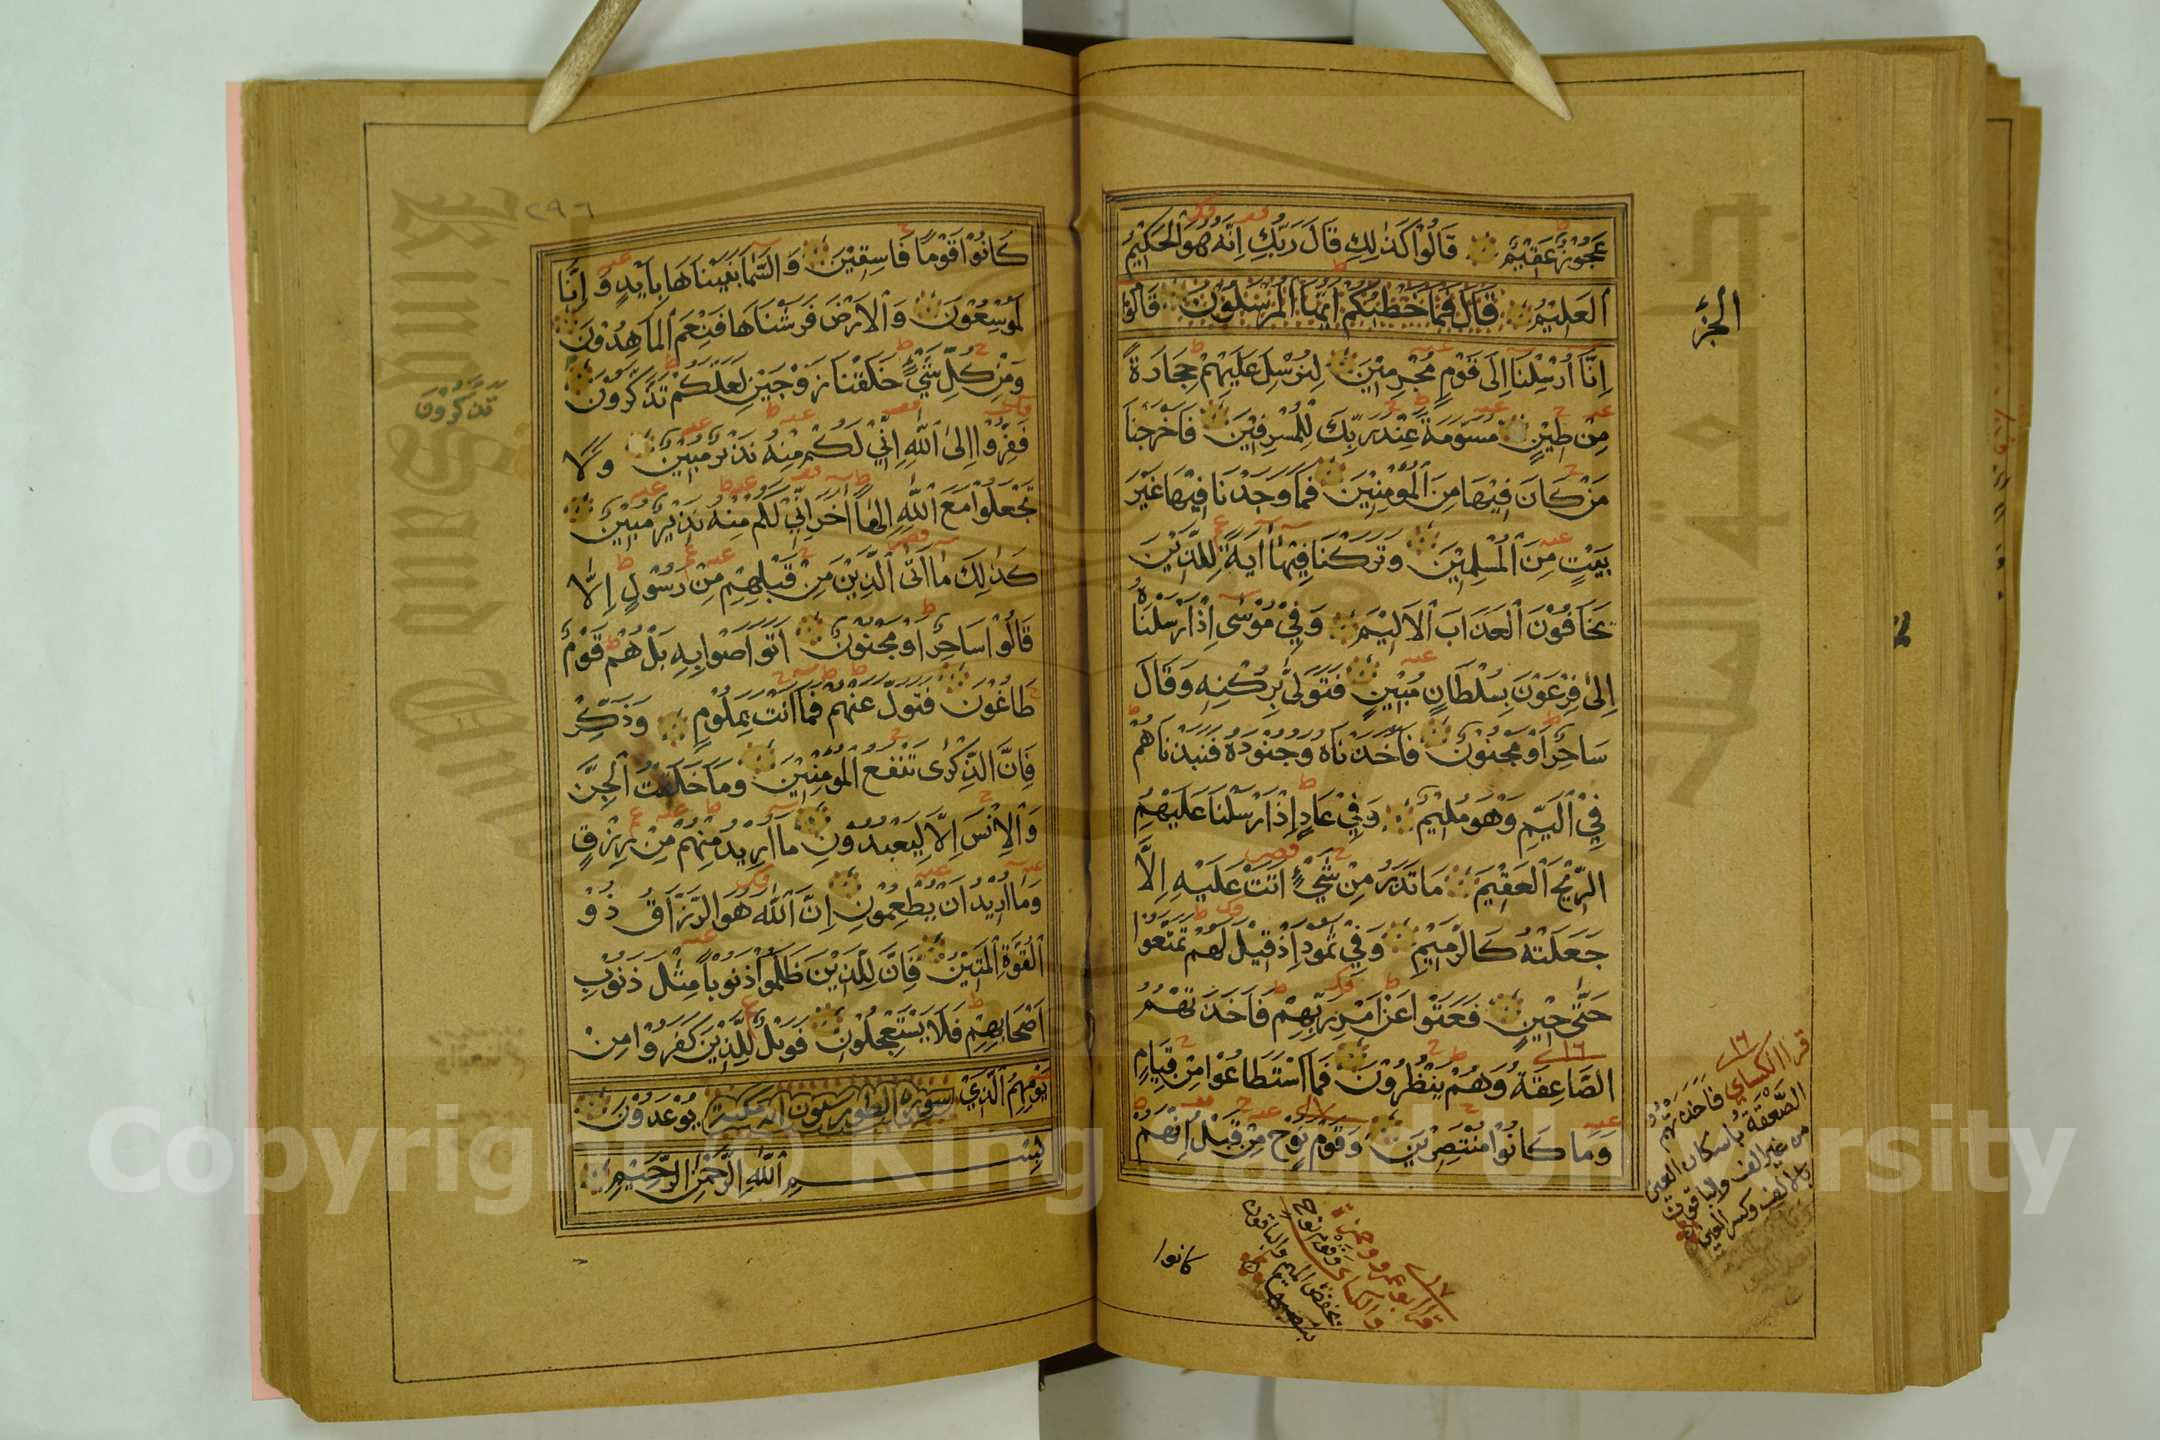 عَجُوْزٌ عَقِيْمٌ قَالُوْا كَذٰلِكِ قَالَ رَبُّكِ اِنَّهُ هُوَ الْحَكِيْمُ
الْعَلِيْمُ قَالَ فَمَا خَطْبُكُمْ اَيُّهَا الْمُرْسَلُوْنَ قَالُوْا
اِنَّا اُرْسِلْنَا اِلَى قَوْمٍ مُجْرِمِيْنَ لِنُرْسِلَ عَلَيْهِمْ حِجَارَةً
مِنْ طِيْنٍ مُسَوَّمَةً عِنْدَ رَبِّكَ لِلْمُسْرِفِيْنَ فَاَخْرَجْنَا
مَنْ كَانَ فِيْهَا مِنَ الْمُؤْمِنِيْنَ فَمَا وَجَدْنَا فِيْهَا غَيْرَ
بَيْتٍ مِنَ الْمُسْلِمِيْنَ وَتَرَكْنَا فِيْهَا اٰيَةً لِلَّذِيْنَ
يَخَافُوْنَ الْعَذَابَ الْاَلِيْمَ وَفِيْ مُوْسٰى اِذْ اَرْسَلْنَاهُ
اِلٰى فِرْعَوْنَ بِسُلْطَانٍ مُبِيْنٍ فَتَوَلّٰى بِرُكْنِهِ وَقَالَ
سَاحِرٌ اَوْ مَجْنُوْنٌ فَاَخَذْنَاهُ وَجُنُوْدَهُ فَنَبَذْنَاهُمْ
فِيْ الْيَمِّ وَهُوَ مُلِيْمٌ وَفِيْ عَادٍ اِذْ اَرْسَلْنَا عَلَيْهِمُ
الرِّيْحَ الْعَقِيْمَ مَا تَذَرُ مِنْ شَيْءٍ اَتَتْ عَلَيْهِ اِلَّا
جَعَلَتْهُ كَالرَّمِيْمِ وَفِيْ ثَمُوْدَ اِذْ قِيْلَ لَهُمْ تَمَتَّعُوْا
حَتّٰى حِيْنٍ فَعَتَوْا عَنْ اَمْرِ رَبِّهِمْ فَاَخَذَتْهُمُ
الصَّاعِقَةُ وَهُمْ يَنْظُرُوْنَ فَمَا اسْتَطَاعُوْا مِنْ قِيَامٍ
وَمَا كَانُوْا مُنْتَصِرِيْنَ وَقَوْمَ نُوْحٍ مِنْ قَبْلُ اِنَّهُمْ
الجزء
١٦
قرا الكسائي فَاَخَذَتْهُمُ
الصَّعْقَةُ باسكان العين
من غير الف والباقون
بالالف وكسر العين
١٧
قرا ابو عمرو وحمزة
والكسائي وقوم نوح
بخفض الميم والباقون
بنصبها
كانوا
٢٩٦
كَانُوْا قَوْمًا فَاسِقِيْنَ وَالسَّمَاءَ بَنَيْنَاهَا بِاَيْدٍ وَاِنَّا
لَمُوْسِعُوْنَ وَالْاَرْضَ فَرَشْنَاهَا فَنِعْمَ الْمَاهِدُوْنَ
وَمِنْ كُلِّ شَيْءٍ خَلَقْنَا زَوْجَيْنِ لَعَلَّكُمْ تَذَكَّرُوْنَ
فَفِرُّوْا اِلَى اللّٰهِ اِنِّيْ لَكُمْ مِنْهُ نَذِيْرٌ مُبِيْنٌ وَلَا
تَجْعَلُوْا مَعَ اللّٰهِ اِلٰهًا اٰخَرَ اِنِّيْ لَكُمْ مِنْهُ نَذِيْرٌ مُبِيْنٌ
كَذٰلِكَ مَا اَتَى الَّذِيْنَ مِنْ قَبْلِهِمْ مِنْ رَسُوْلٍ اِلَّا
قَالُوْا سَاحِرٌ اَوْ مَجْنُوْنٌ اَتَوَاصَوْا بِهِ بَلْ هُمْ قَوْمٌ
طَاغُوْنَ فَتَوَلَّ عَنْهُمْ فَمَا اَنْتَ بِمَلُوْمٍ وَذَكِّرْ
فَاِنَّ الذِّكْرٰى تَنْفَعُ الْمُؤْمِنِيْنَ وَمَا خَلَقْتُ الْجِنَّ
وَالْاِنْسَ اِلَّا لِيَعْبُدُوْنِ مَا اُرِيْدُ مِنْهُمْ مِنْ رِزْقٍ
وَمَا اُرِيْدُ اَنْ يُطْعِمُوْنِ اِنَّ اللّٰهَ هُوَ الرَّزَّاقُ ذُوْ
الْقُوَّةِ الْمَتِيْنُ فَاِنَّ لِلَّذِيْنَ ظَلَمُوْا ذَنُوْبًا مِثْلَ ذَنُوْبِ
اَصْحَابِهِمْ فَلَا يَسْتَعْجِلُوْنِ فَوَيْلٌ لِلَّذِيْنَ كَفَرُوْا مِنْ
يَوْمِهِمُ الَّذِيْ سورة الطور اية مكية يُوْعَدُوْنَ
بِسْمِ اللّٰهِ الرَّحْمٰنِ الرَّحِيْمِ
تَذَّكَّرُوْنَ
Copyright © King Saud University
King Saud University